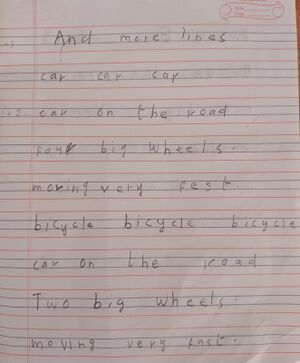 And more lines.
car car car
car on the road
four big wheels.
moving very fest.
bicycle bicycle bicycle
car on the road
Two big wheels.
moving very fast.